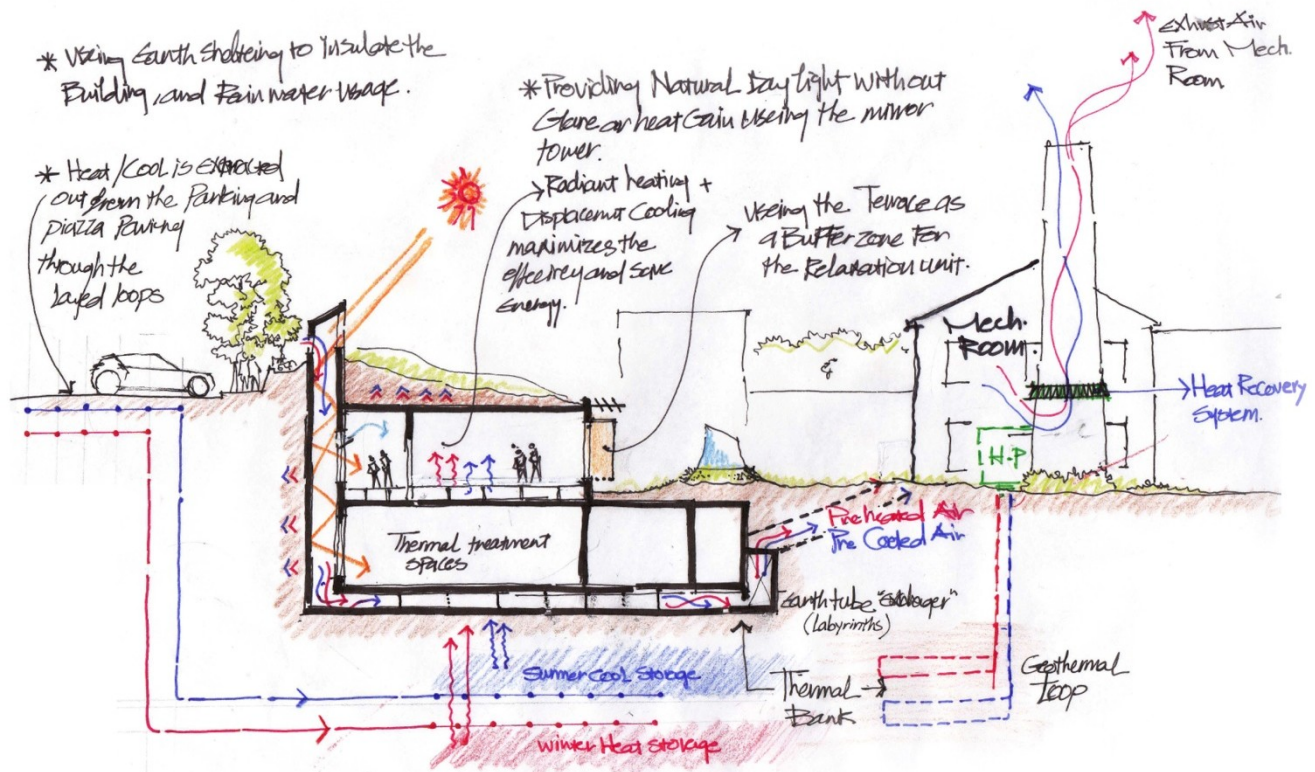 * Using Earth Sheltering to Insulate the
Building, and Rain water Usage.
* Heat/Cool is extracted
out from the Parking and
piazza Paving
through the
layed loops
* Providing Natural Day light without
Glare or heat Gain Useing the mirror
tower.
Radiant heating +
Displacement Cooling
maximizes the
and Save
Energy.
Useing the Terrace as
a Buffer zone For
the Relaxation unit.
Exhust Air
From Mech.
Room
Mech.
ROOM
Heat Recovery
System.
H.P
Thermal treatment
spaces
Pre heated Air
Pre Cooled Air
Earth tube
(labyrinths)
Summer Cool Storage
Winter Heat Storage
Thermal
Bank
Geothermal
Loop